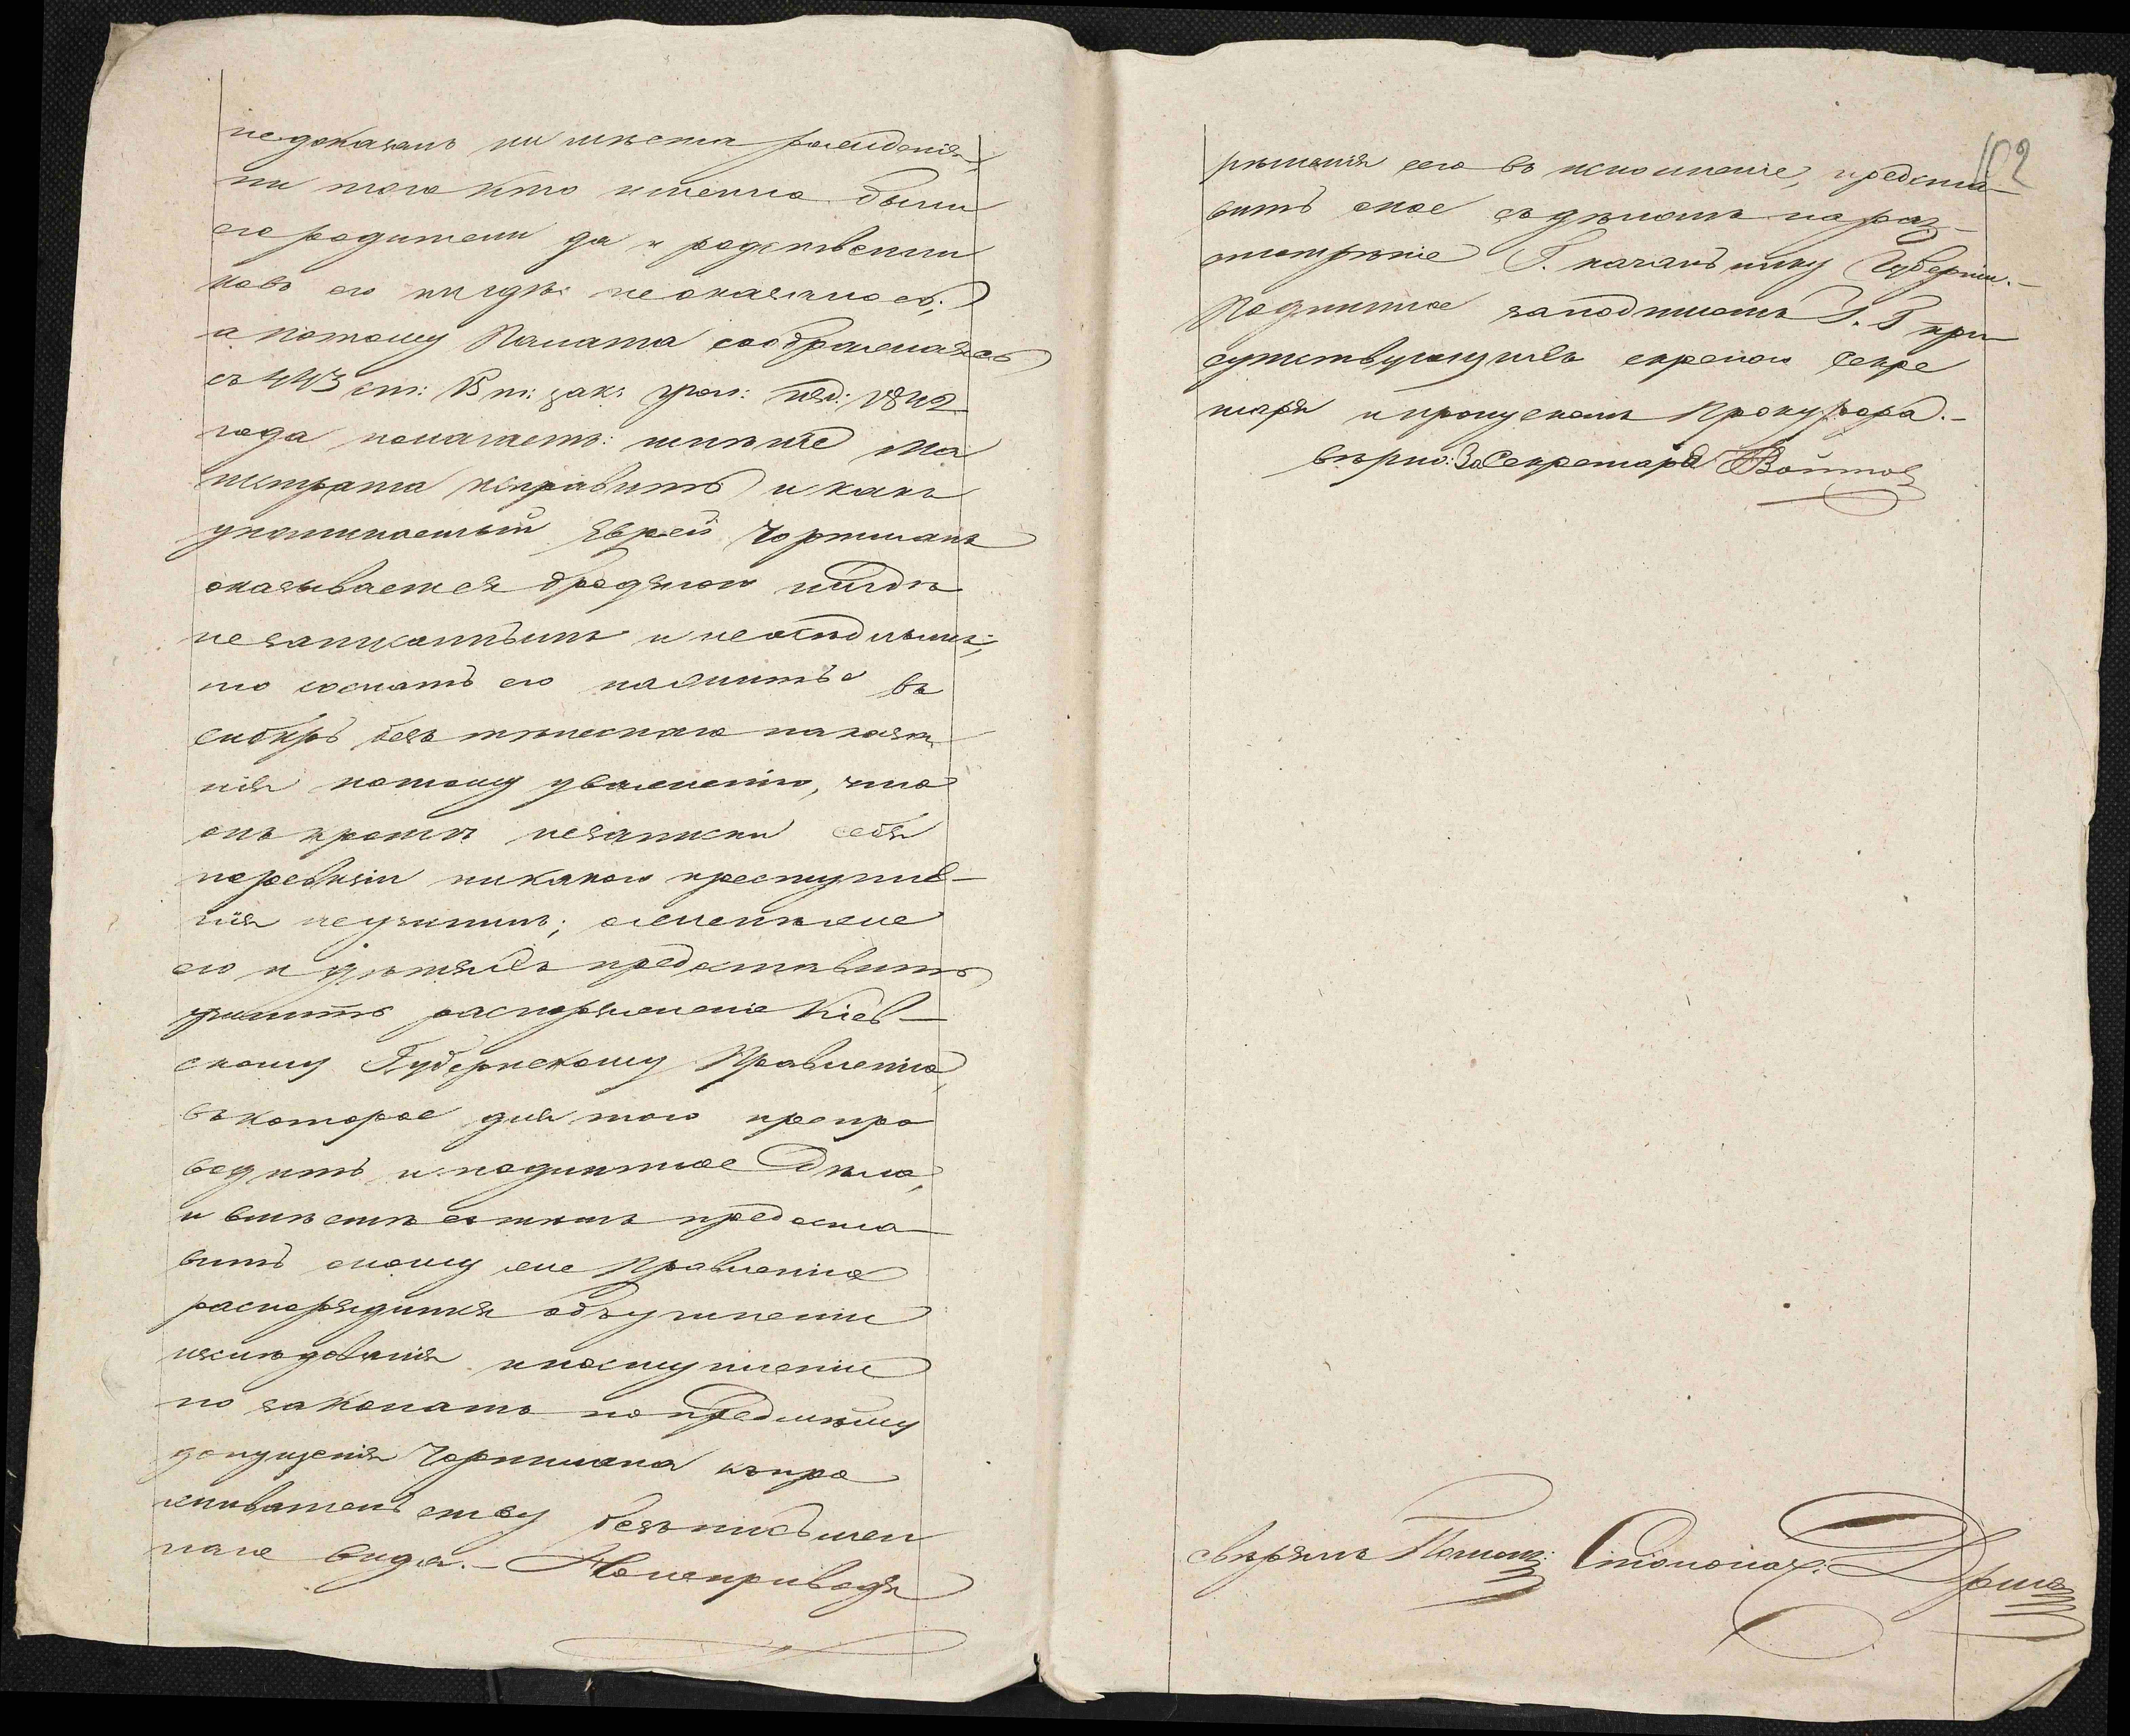 недоказалъ ни мѣста рожденія,
ни того кто именно были
его родители да и родственни
ковъ его нигдѣ неоказалось;
а потому Палата соображаясь
съ 443 ст: 15 т: зак: угол: изд: 1842
года полагаетъ: мнѣніе Ма
гистрата исправить и какъ
упоминаемый Еврей Чортманъ
оказывается бродягою нигдѣ
незаписаннымъ и неосѣдлымъ,
то сослать его на житье въ
Сибирь безъ тѣлеснаго наказа
нія потому уваженію, что
онъ кромѣ незаписки себя
поревизіи никакого преступле-
нія неучинилъ; оженѣже
его и дѣтяхъ предоставить
учинить распоряженіе Кіев-
скому Губернскому Правленію,
въкоторое для того препро
водить и подлинное Дѣло,
и вмѣстѣ съ тѣмъ предоста
вить оному же Правленію
распорядится объучиненіи
изслѣдованія ипоступленіи
по законамъ по предмѣту
допущенія Чортмана къпро
живательству безъписьмен
наго вида. – Но неприводя
102
рѣшенія сего въ исполненіе, предста-
вить оное съдѣломъ на раз-
смотрѣніе Г. начальнику Губерніи. –
Подлинное заподписомъ Г. Г при
сутствующихъ скрепою Секре
таря ипропускомъ Прокурора. –
вѣрно: За Секретаря Войтов
свѣрялъ Помощ: Столонач: